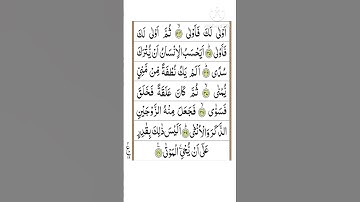 اَوْلٰى لَكَ فَاَوْلٰى ﴿۳۴﴾ ثُمَّ اَوْلٰى لَكَ
فَاَوْلٰى ﴿۳۵﴾ اَيَحْسَبُ الْاِنْسَانُ اَنْ يُّتْرَكَ
سُدًى ﴿۳۶﴾ اَلَمْ يَكُ نُطْفَةً مِّنْ مَّنِيٍّ
يُّمْنٰى ﴿۳۷﴾ ثُمَّ كَانَ عَلَقَةً فَخَلَقَ
فَسَوّٰى ﴿۳۸﴾ فَجَعَلَ مِنْهُ الزَّوْجَيْنِ
الذَّكَرَ وَالْاُنْثٰى ﴿۳۹﴾ اَلَيْسَ ذٰلِكَ بِقٰدِرٍ
عَلٰٓى اَنْ يُّحْيِۦَ الْمَوْتٰى ﴿۴۰﴾